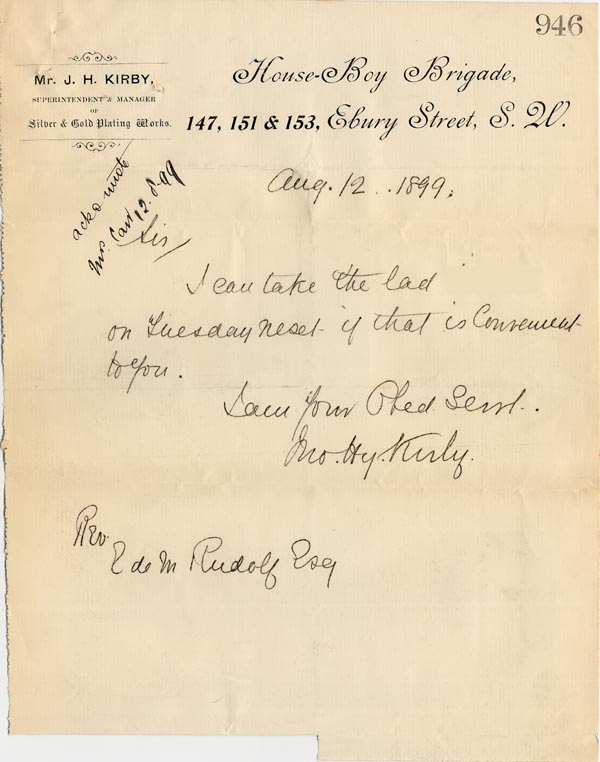 946
Mr. J. H. KIRBY,
SUPERINTENDENT & MANAGER
OF
Silver & Gold Plating Works.
House-Boy Brigade,
147, 151 & 153, Ebury Street, S. W.
Aug. 12 . . 1899.
Mrs. 12.8.99
Sir/
I can take the lad
on Tuesday next if that is Convenient
to You.
I am Your Obed. Servt.
Jno. Hy. Kirby.
Rev.
E de M Rudolf Esq